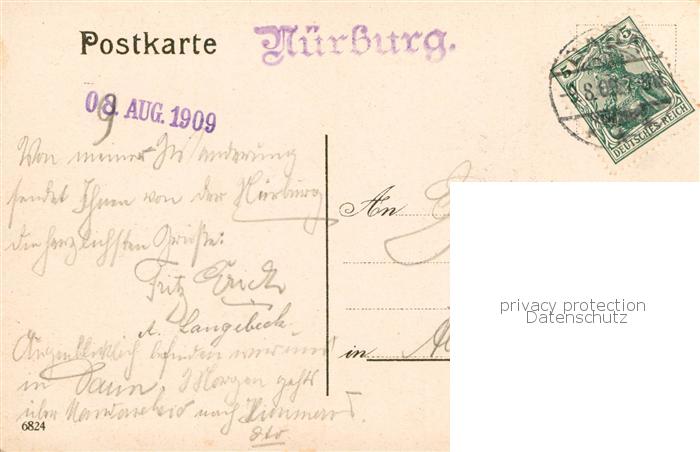 Postkarte
Nürburg.
08. AUG. 1909
9
5 5
DEUTSCHES REICH
Von meiner
sendet Ihnen von der Nürburg
die herzlichsten Grüße:
Fritz Erich
A. Langebeck.
An
Augenblicklich befinden wir uns
in Daun. Morgen gehts
über nach
in
6824
privacy protection
Datenschutz